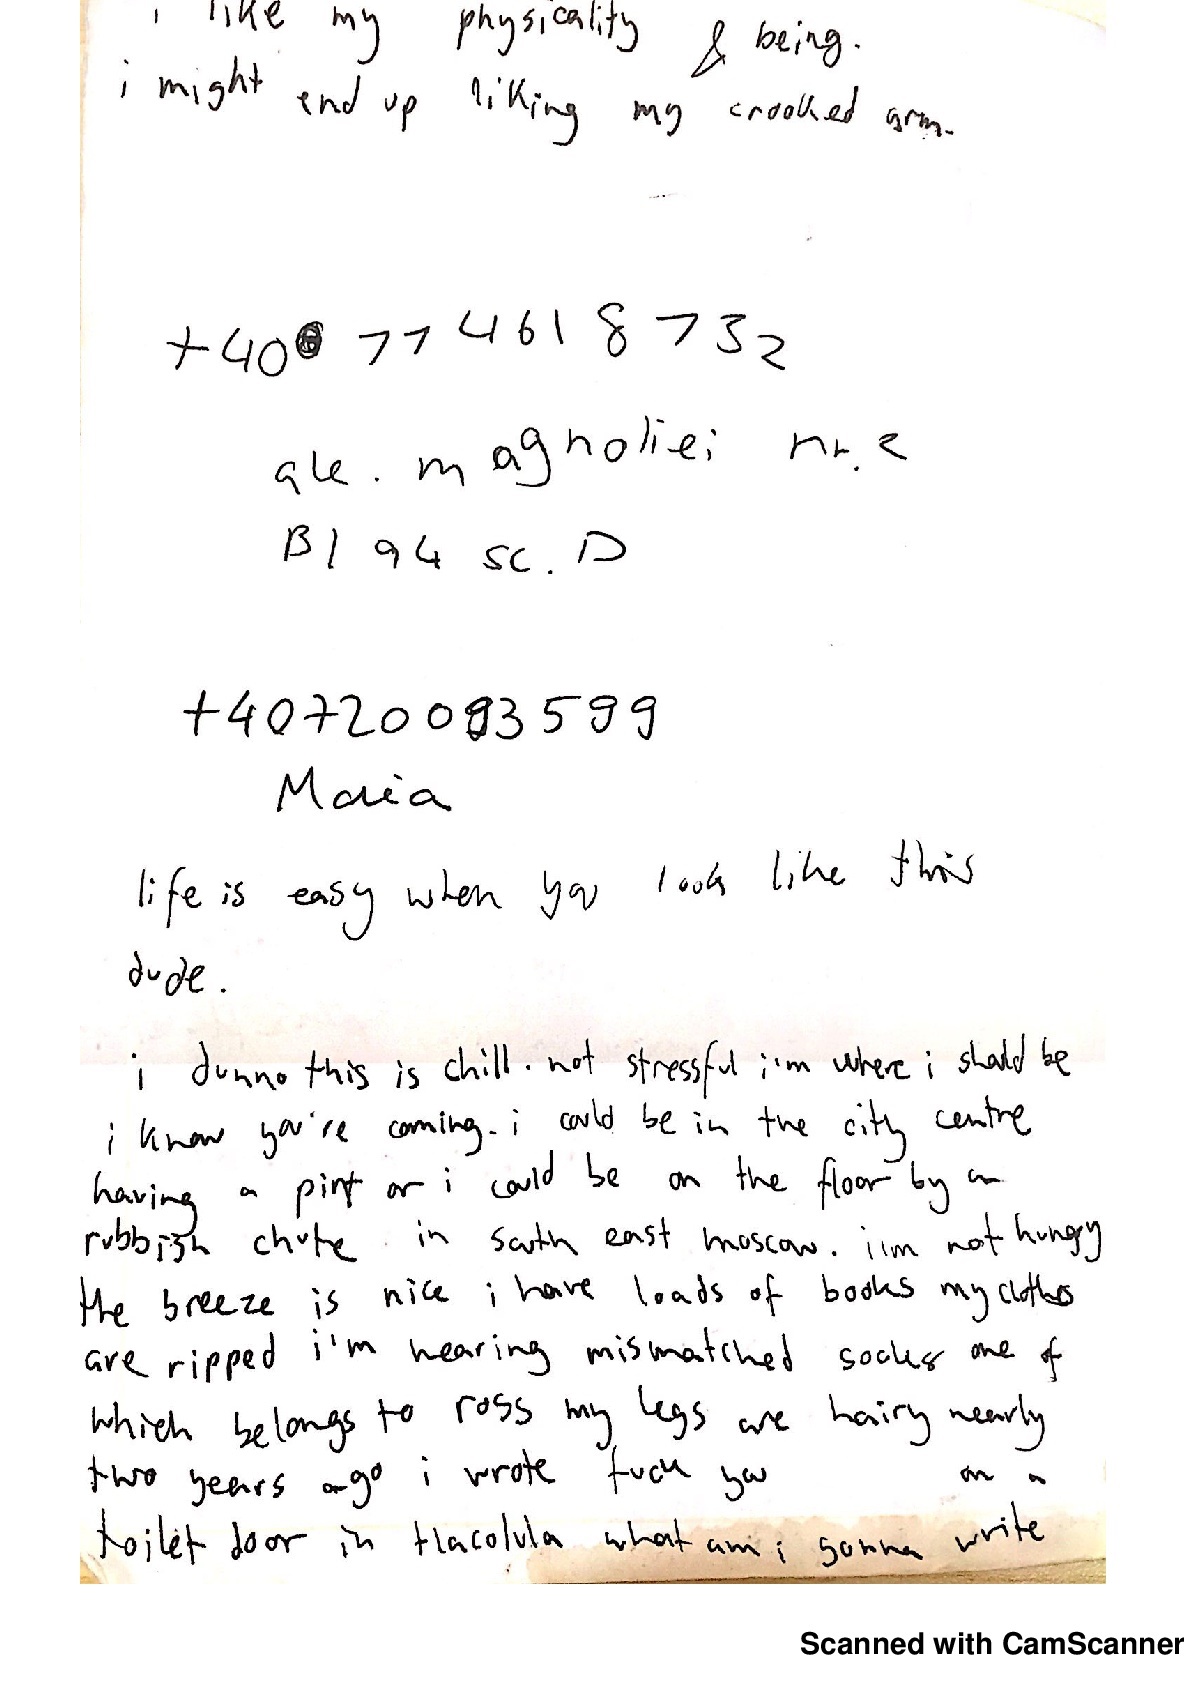 i like my physicality & being.
i might end up liking my crooked arm.
+40 774618732
ale. magnoliei nr. 2
Bl 94 sc. D
+40720093599
Maria
life is easy when you look like this
dude.
i dunno this is chill. not stressful i'm where i should be
i know you're coming. i could be in the city centre
having a pint or i could be on the floor by a
rubbish chute in south east moscow. i'm not hungry
the breeze is nice i have loads of books my clothes
are ripped i'm wearing mismatched socks one of
which belongs to ross my legs are hairy nearly
two years ago i wrote fuck you on a
toilet door in tlacolula what am i gonna write
Scanned with CamScanner